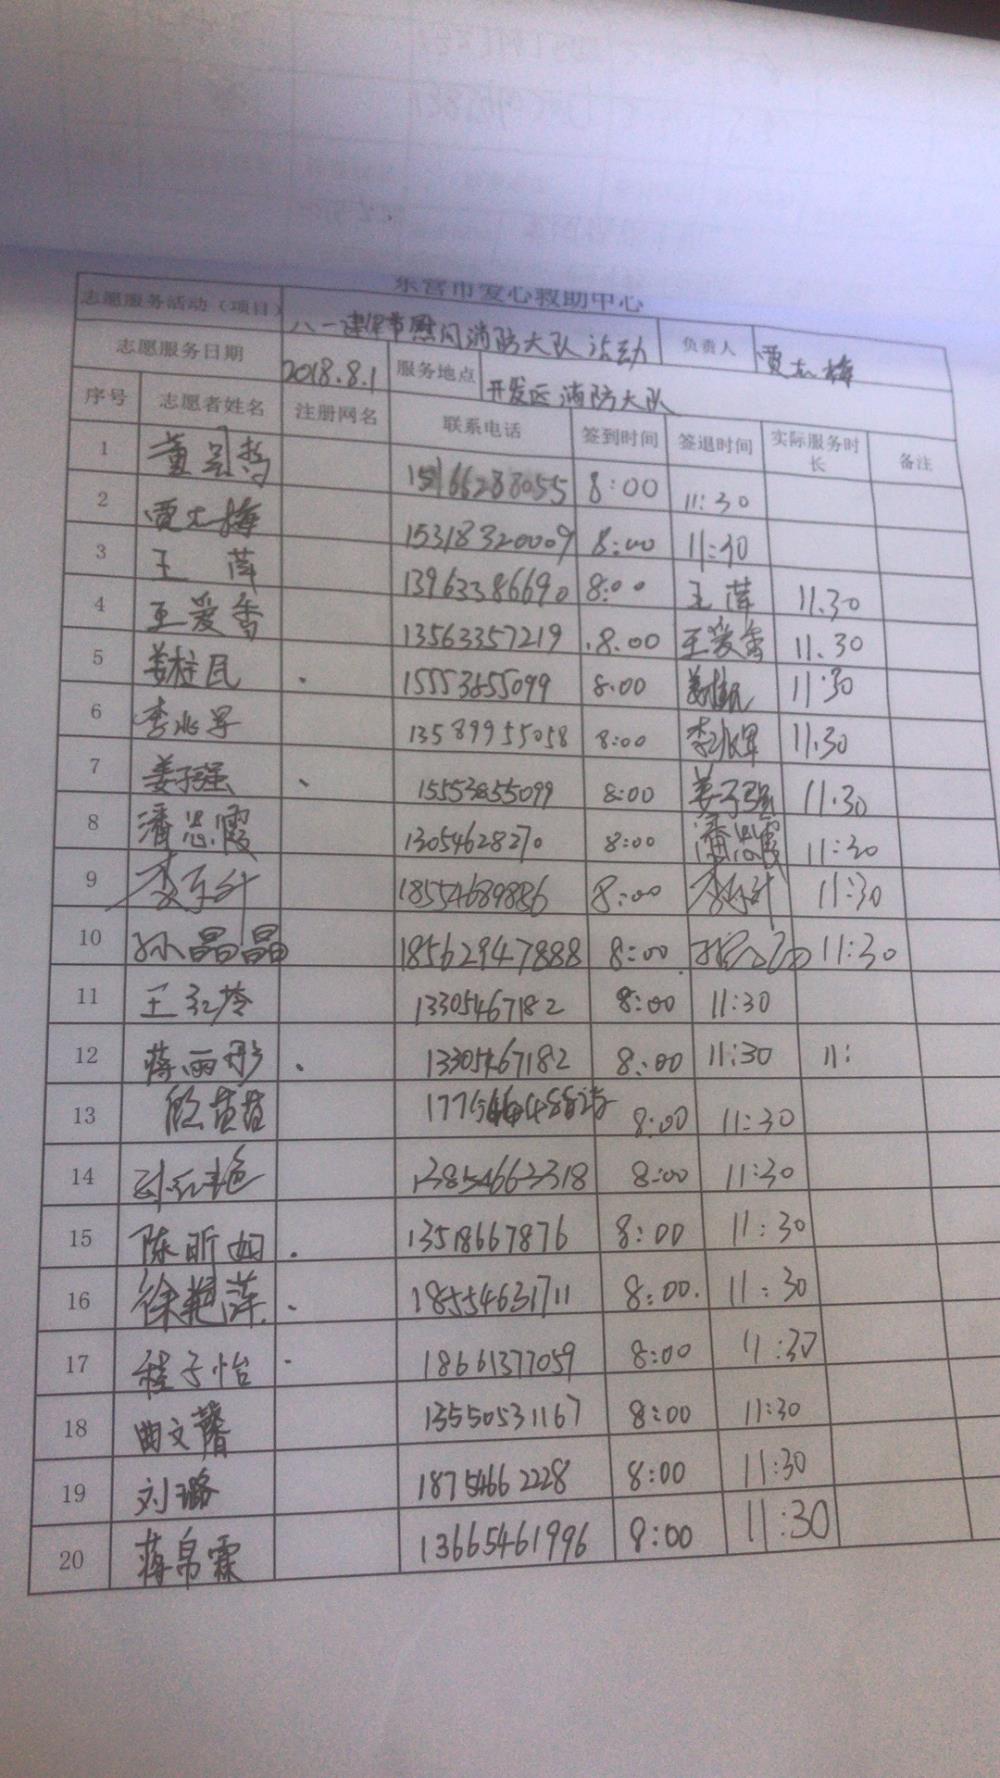 东营市爱心救助中心
志愿服务活动（项目） 八一建军节慰问消防大队活动 负责人 贾志梅
志愿服务日期 2018.8.1 服务地点 开发区消防大队
序号 志愿者姓名 注册网名 联系电话 签到时间 签退时间 实际服务时长 备注
1 董 8:00 11:30
2 贾志梅 15318320009 8:00 11:30
3 王 13963386690 8:00 王 11.30
4 王爱香 13563357219 8.00 王爱香 11.30
5 姜桂民 15553855099 8.00 11:30
6 李冰军 13589955058 8:00 李冰军 11.30
7 姜子强 15553855099 8:00 姜子强 11.30
8 潘思霞 13054628270 8:00 潘思霞 11:30
9 李 18554689886 8:00 李 11:30
10 孙晶晶 18562947888 8:00 11:30
11 王玲 13305467182 8:00 11:30
12 蒋雨彤 13305467182 8:00 11:30 11:
13 苗苗 8:00 11:30
14 13854663318 8:00 11:30
15 陈昕如 13518667876 8:00 11:30
16 徐艳萍 18554631711 8:00. 11:30
17 程子怡 18661377059 8:00 11:30
18 曲文馨 13550531167 8:00 11:30
19 刘璐 18754662228 8:00 11:30
20 蒋帛霖 13665461996 8:00 11:30